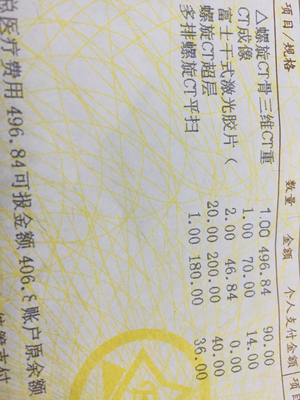 项目/规格 数量 金额 个人支付金额 项目
△螺旋CT骨三维CT重 1.00 496.84 90.00
CT成像 1.00 70.00 14.00
富士干式激光胶片( 2.00 46.84 0.00
螺旋CT超层 20.00 200.00 40.00
多排螺旋CT平扫 1.00 180.00 36.00
总医疗费用 496.84 可报金额 406.8 账户原余额